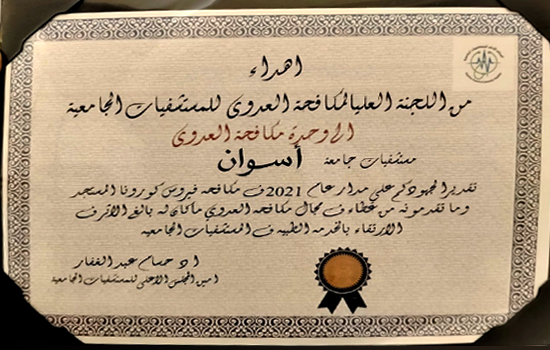 اهداء
من اللجنة العليا لمكافحة العدوى للمستشفيات الجامعية
الى وحدة مكافحة العدوى
مستشفيات جامعة أسوان
تقديرا لجهودكم على مدار عام 2021 ف مكافحة فيروس كورونا المستجد
وما تقدمونه من عطاء ف مجال مكافحة العدوي ماكان له بالغ الأثر ف
الارتقاء بالخدمه الطبيه ف المستشفيات الجامعيه
ا.د حسام عبد الغفار
امين المجلس الاعلى للمستشفيات الجامعية